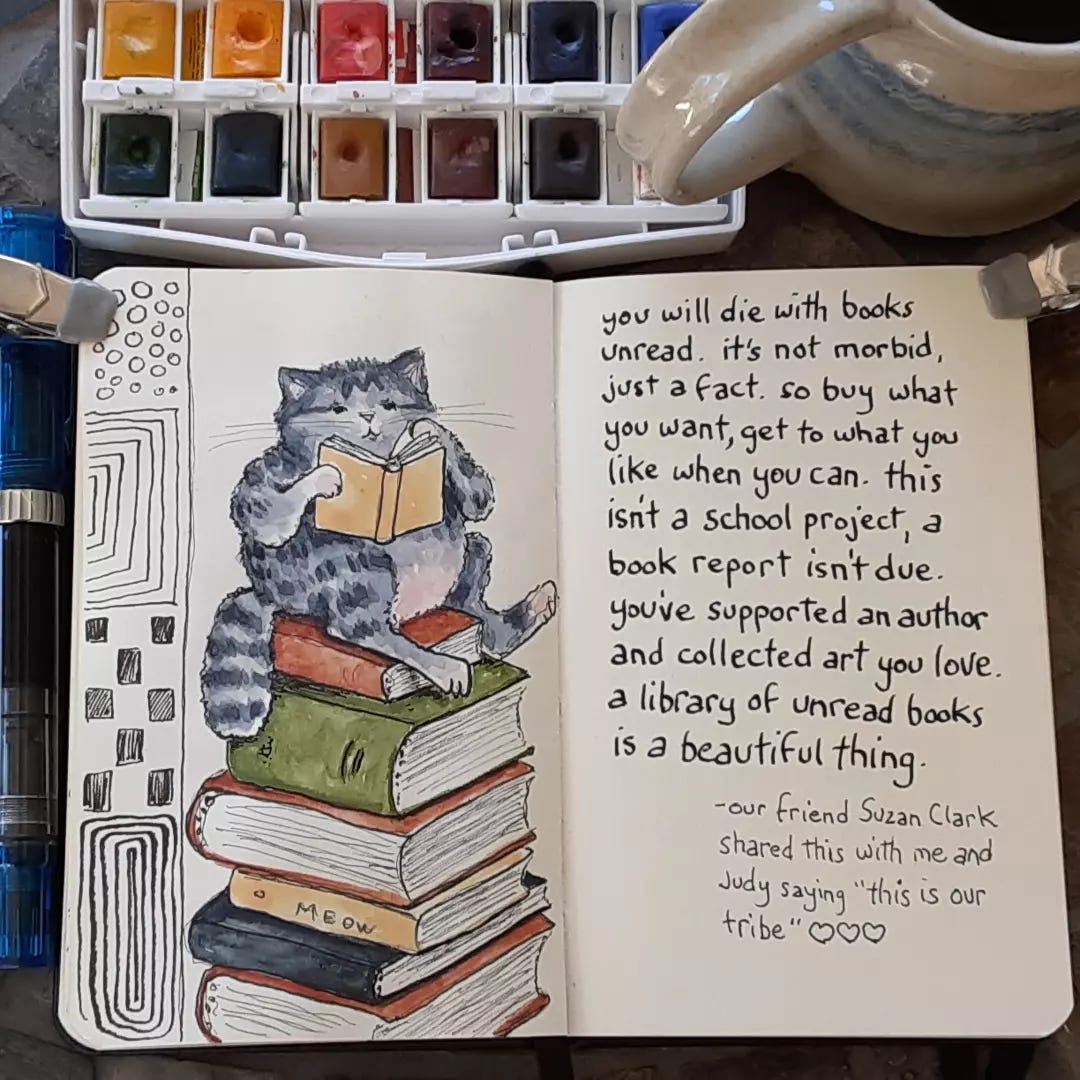 MEOW
you will die with books
unread. it's not morbid,
just a fact. so buy what
you want, get to what you
like when you can. this
isn't a school project, a
book report isn't due.
you've supported an author
and collected art you love.
a library of unread books
is a beautiful thing.
-our friend Suzan Clark
shared this with me and
Judy saying "this is our
tribe" ♡♡♡